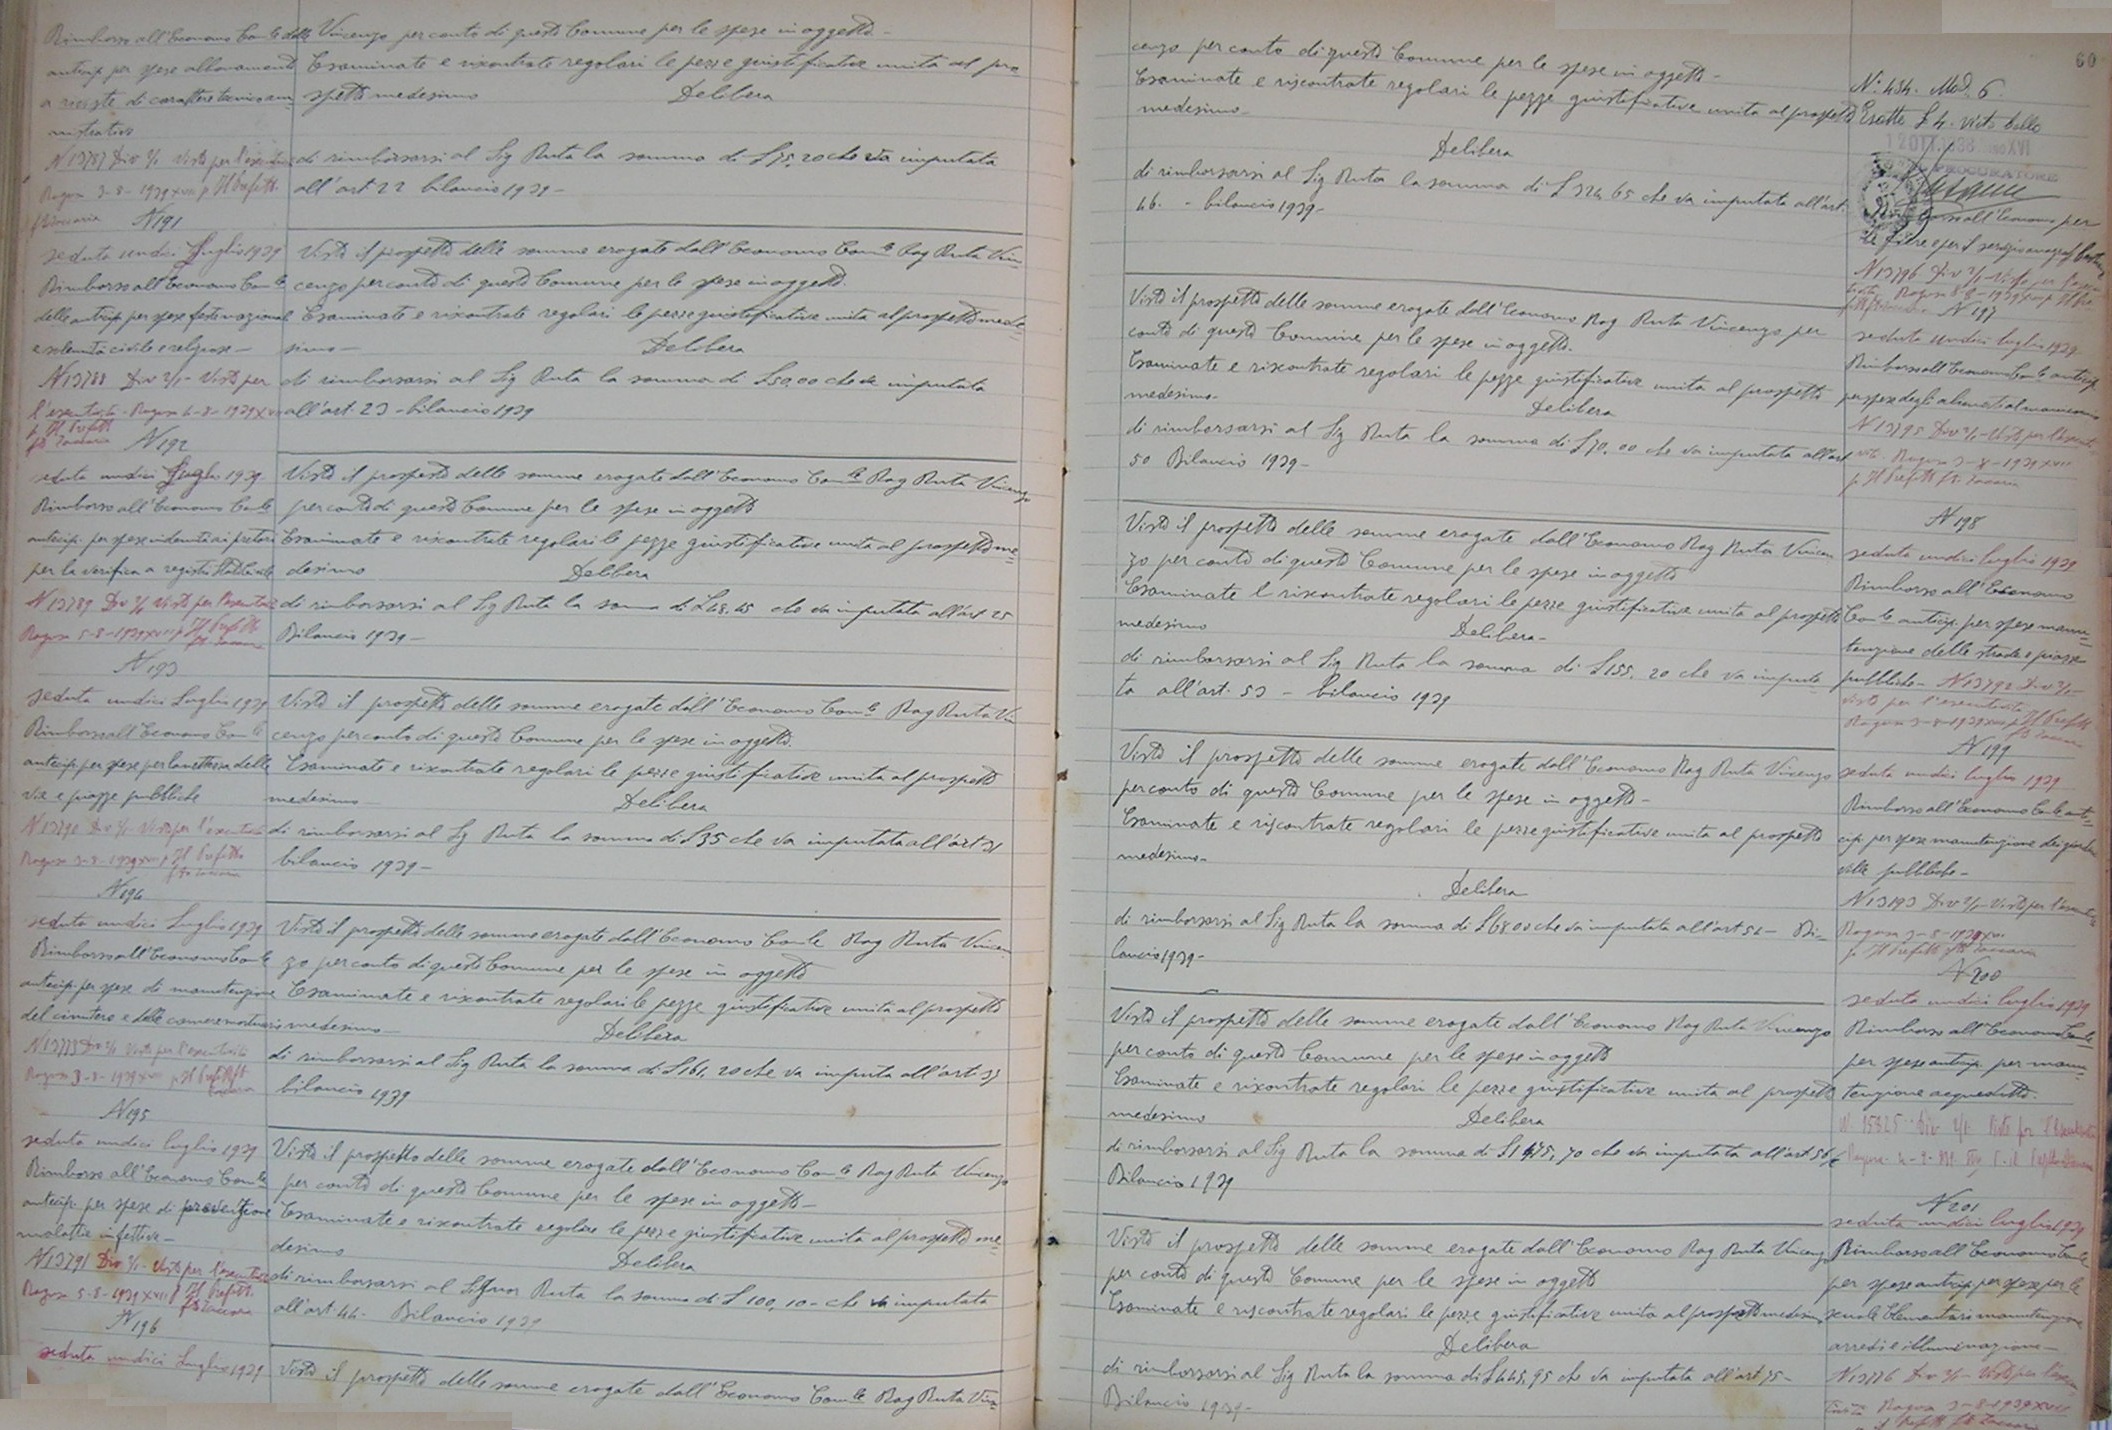 Rimborso all'Economo Com.le delle
anticip. per spese abbonamenti
a riviste di carattere tecnico am
nistrativo
N 13787 Div 2/1 Visto per l'esecutiv
Ragusa 3-8-1939 XVII p Il Prefetto
N 191
seduta undici Luglio 1939
Rimborso all'Economo Com.le
delle anticip. per spese feste nazionali
e solennità civili e religiose -
N 13788 Div 2/1 - Visto per
l'esecutività - Ragusa 4-8-1939 XVII
p. Il Prefetto
N 192
seduta undici Luglio 1939
Rimborso all'Economo Com.le
anticip. per spese indennità ai pretori
per la verifica a registri Stato civile
N 13789 Div 2/1 Visto per l'esecutiv
Ragusa 5-8-1939 XVII p Il Prefetto
N 193
seduta undici Luglio 1939
Rimborso all'Economo Com.le
anticip. per spese per la nettezza delle
vie e piazze pubbliche
N 13790 Div 2/1 - Visto per l'esecutività
Ragusa 3-8-1939 XVII p Il Prefetto
N 194
seduta undici Luglio 1939
Rimborso all'Economo Com.le
anticip. per spese di manutenzione
del cimitero e delle camere mortuarie
Div 2/1 Visto per l'esecutività
Ragusa 3-8-1939 XVII p Il Prefetto
N 195
seduta undici luglio 1939
Rimborso all'Economo Com.le
anticip. per spese di prevenzione
malattie infettive -
N 13791 Div 2/1 - Visto per l'esecutiv
Ragusa 5-8-1939 XVII p Il Prefetto
N 196
seduta undici Luglio 1939
Vincenzo per conto di questo Comune per le spese in oggetto -
Esaminate e riscontrate regolari le pezze giustificative unita al pro
spetto medesimo Delibera
di rimborsarsi al Sig Ruta la somma di £ 75,20 che va imputata
all'art 22 bilancio 1939 -
Visto il prospetto delle somme erogate dall'Economo Com.le Rag Ruta Vin
cenzo per conto di questo Comune per le spese in oggetto.
Esaminate e riscontrate regolari le pezze giustificative unita al prospetto mede
simo - Delibera
di rimborsarsi al Sig Ruta la somma di £ 50,00 che va imputata
all'art. 23 - bilancio 1939
Visto il prospetto delle somme erogate dall'Economo Com.le Rag Ruta Vincenzo
per conto di questo Comune per le spese in oggetto
Esaminate e riscontrate regolari le pezze giustificative unita al prospetto me
desimo Delibera
di rimborsarsi al Sig Ruta la somma di £ 48.45 che va imputata all'art 25
Bilancio 1939 -
Visto il prospetto delle somme erogate dall'Economo Com.le Rag Ruta Vin
cenzo per conto di questo Comune per le spese in oggetto.
Esaminate e riscontrate regolari le pezze giustificative unita al prospetto
medesimo Delibera
di rimborsarsi al Sig Ruta la somma di £ 35 che va imputata all'art 31
bilancio 1939 -
Visto il prospetto delle somme erogate dall'Economo Com.le Rag Ruta Vincen
zo per conto di questo Comune per le spese in oggetto
Esaminate e riscontrate regolari le pezze giustificative unita al prospetto
medesimo - Delibera
di rimborsarsi al Sig Ruta la somma di £ 161,20 che va imputa all'art. 33
bilancio 1939
Visto il prospetto delle somme erogate dall'Economo Com.le Rag Ruta Vincenzo
per conto di questo Comune per le spese in oggetto -
Esaminate e riscontrate regolari le pezze giustificative unita al prospetto me
desimo Delibera
di rimborsarsi al Signor Ruta la somma di £ 100,10 - che va imputata
all'art 44. Bilancio 1939
Visto il prospetto delle somme erogate dall'Economo Com.le Rag Ruta Vin
cenzo per conto di questo Comune per le spese in oggetto -
Esaminate e riscontrate regolari le pezze giustificative unita al prospetto
medesimo -
Delibera
di rimborsarsi al Sig Ruta la somma di £ 324,65 che va imputata all'art.
46. - bilancio 1939 -
Visto il prospetto delle somme erogate dall'Economo Rag Ruta Vincenzo per
conto di questo Comune per le spese in oggetto.
Esaminate e riscontrate regolari le pezze giustificative unita al prospetto
medesimo - Delibera
di rimborsarsi al Sig Ruta la somma di £ 70,00 che va imputata all'art
50 Bilancio 1939 -
Visto il prospetto delle somme erogate dall'Economo Rag Ruta Vincen
zo per conto di questo Comune per le spese in oggetto
Esaminate e riscontrate regolari le pezze giustificative unita al prospetto
medesimo Delibera -
di rimborsarsi al Sig Ruta la somma di £ 155,20 che va imputa
ta all'art. 53 - bilancio 1939
Visto il prospetto delle somme erogate dall'Economo Rag Ruta Vincenzo
per conto di questo Comune per le spese in oggetto -
Esaminate e riscontrate regolari le pezze giustificative unita al prospetto
medesimo -
Delibera
di rimborsarsi al Sig Ruta la somma di £ 68.00 che va imputata all'art 54 - Bi-
lancio 1939 -
Visto il prospetto delle somme erogate dall'Economo Rag Ruta Vincenzo
per conto di questo Comune per le spese in oggetto
Esaminate e riscontrate regolari le pezze giustificative unita al prospetto
medesimo Delibera
di rimborsarsi al Sig Ruta la somma di che va imputata all'art 56
Bilancio 1939
Visto il prospetto delle somme erogate dall'Economo Rag Ruta Vincenzo
per conto di questo Comune per le spese in oggetto
Esaminate e riscontrate regolari le pezze giustificative unita al prospetto medesimo
Delibera
di rimborsarsi al Sig Ruta la somma di £ 445,95 che va imputata all'art 75 -
Bilancio 1939 -
60
N. 454. Mod. 6
Esatte £ 4. visto bollo
12 OTT. 1938 ANNO XVI
PROCURATORE
all'Economo per
le fiere e per il servizio
N 13796 Div 2/1 - Visto per l'esecu
Ragusa 8-8-1939 XVII p Il Pre
N 197
seduta undici luglio 1939
Rimborso all'Economo Com.le anticip
per spese degli alimenti al manicomio
N 13795 Div 2/1 - Visto per l'esecuti
vità. Ragusa 3-8-1939 XVII
p. Il Prefetto ft. Zaccaria
N 198
seduta undici luglio 1939
Rimborso all'Economo
Com.le anticip. per spese manu
tenzione delle strade e piazze
pubbliche - N 13792 Div 2/1 -
Visto per l'esecutività
Ragusa 3-8-1939 XVII p Il Prefetto
N 199
seduta undici luglio 1939
Rimborso all'Economo Com.le anti-
cip. per spese manutenzione dei giardini
ville pubbliche -
N 13793 Div 2/1 - Visto per l'esecutiv
Ragusa 3-8-1939 XVII
p. Il Prefetto ft Zaccaria
N 200
seduta undici luglio 1939
Rimborso all'Economo Com.le
per spese anticip. per manu
tenzione acquedotto.
N. 15325 Div 2/1 Visto per l'Esecutività
N 201
seduta undici luglio 1939
Rimborso all'Economo Com.le
per spese anticip per spese per le
scuole Elementari manutenzione
arredi e illuminazione -
Div 2/1 - Visto per l'esecu
tività Ragusa 3-8-1939 XVII
Il Prefetto ft Zaccaria